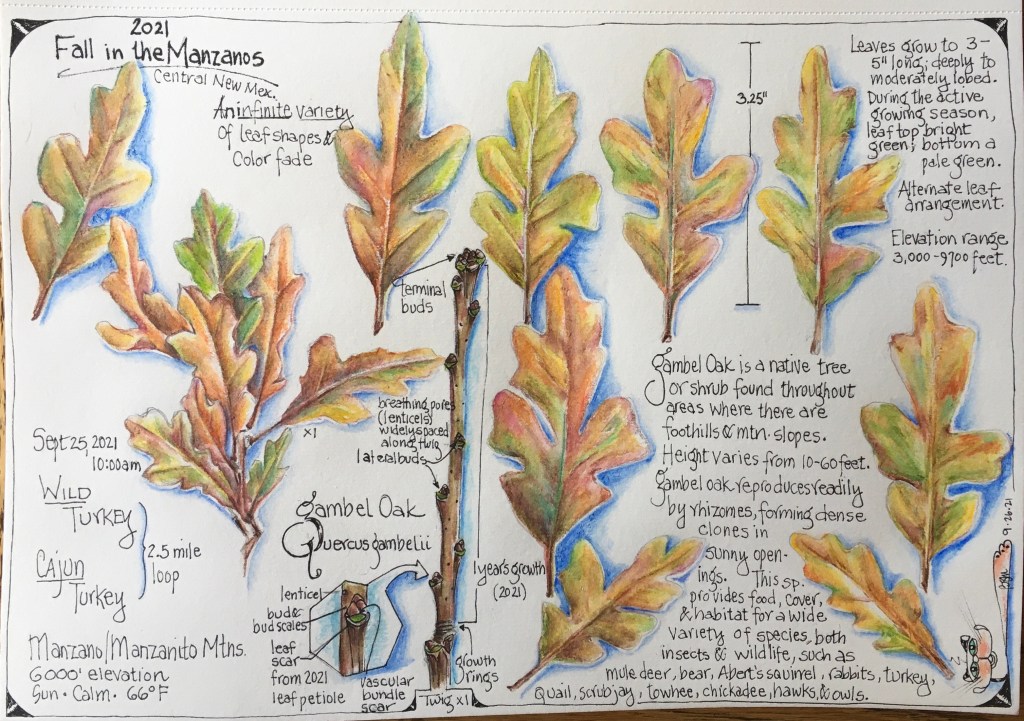 2021
Fall in the Manzanos
Central New Mex.
An infinite variety
of leaf shapes &
color fade
3.25"
Leaves grow to 3-
5" long; deeply to
moderately lobed.
During the active
growing season,
leaf top bright
green; bottom a
pale green.
Alternate leaf
arrangement.
Elevation range
3,000-9700 feet.
terminal
buds
breathing pores
(lenticels)
widely spaced
along twig
lateral buds
x1
Sept 25, 2021
10:00am
Wild
Turkey
Cajun
Turkey
2.5 mile
loop
Manzano/Manzanito Mtns.
6000' elevation
Sun • Calm • 66°F
Gambel Oak
Quercus gambelii
lenticel
bud &
bud scales
leaf
scar
from 2021
leaf petiole
vascular
bundle
scar
1 year's growth
(2021)
growth
rings
Twig x1
Gambel Oak is a native tree
or shrub found throughout
areas where there are
foothills & mtn. slopes.
Height varies from 10-60 feet.
Gambel oak reproduces readily
by rhizomes, forming dense
clones in
sunny open-
ings. This sp.
provides food, cover,
& habitat for a wide
variety of species, both
insects & wildlife, such as
mule deer, bear, Abert's squirrel, rabbits, turkey,
quail, scrub jay, towhee, chickadee, hawks, & owls.
9-26-21